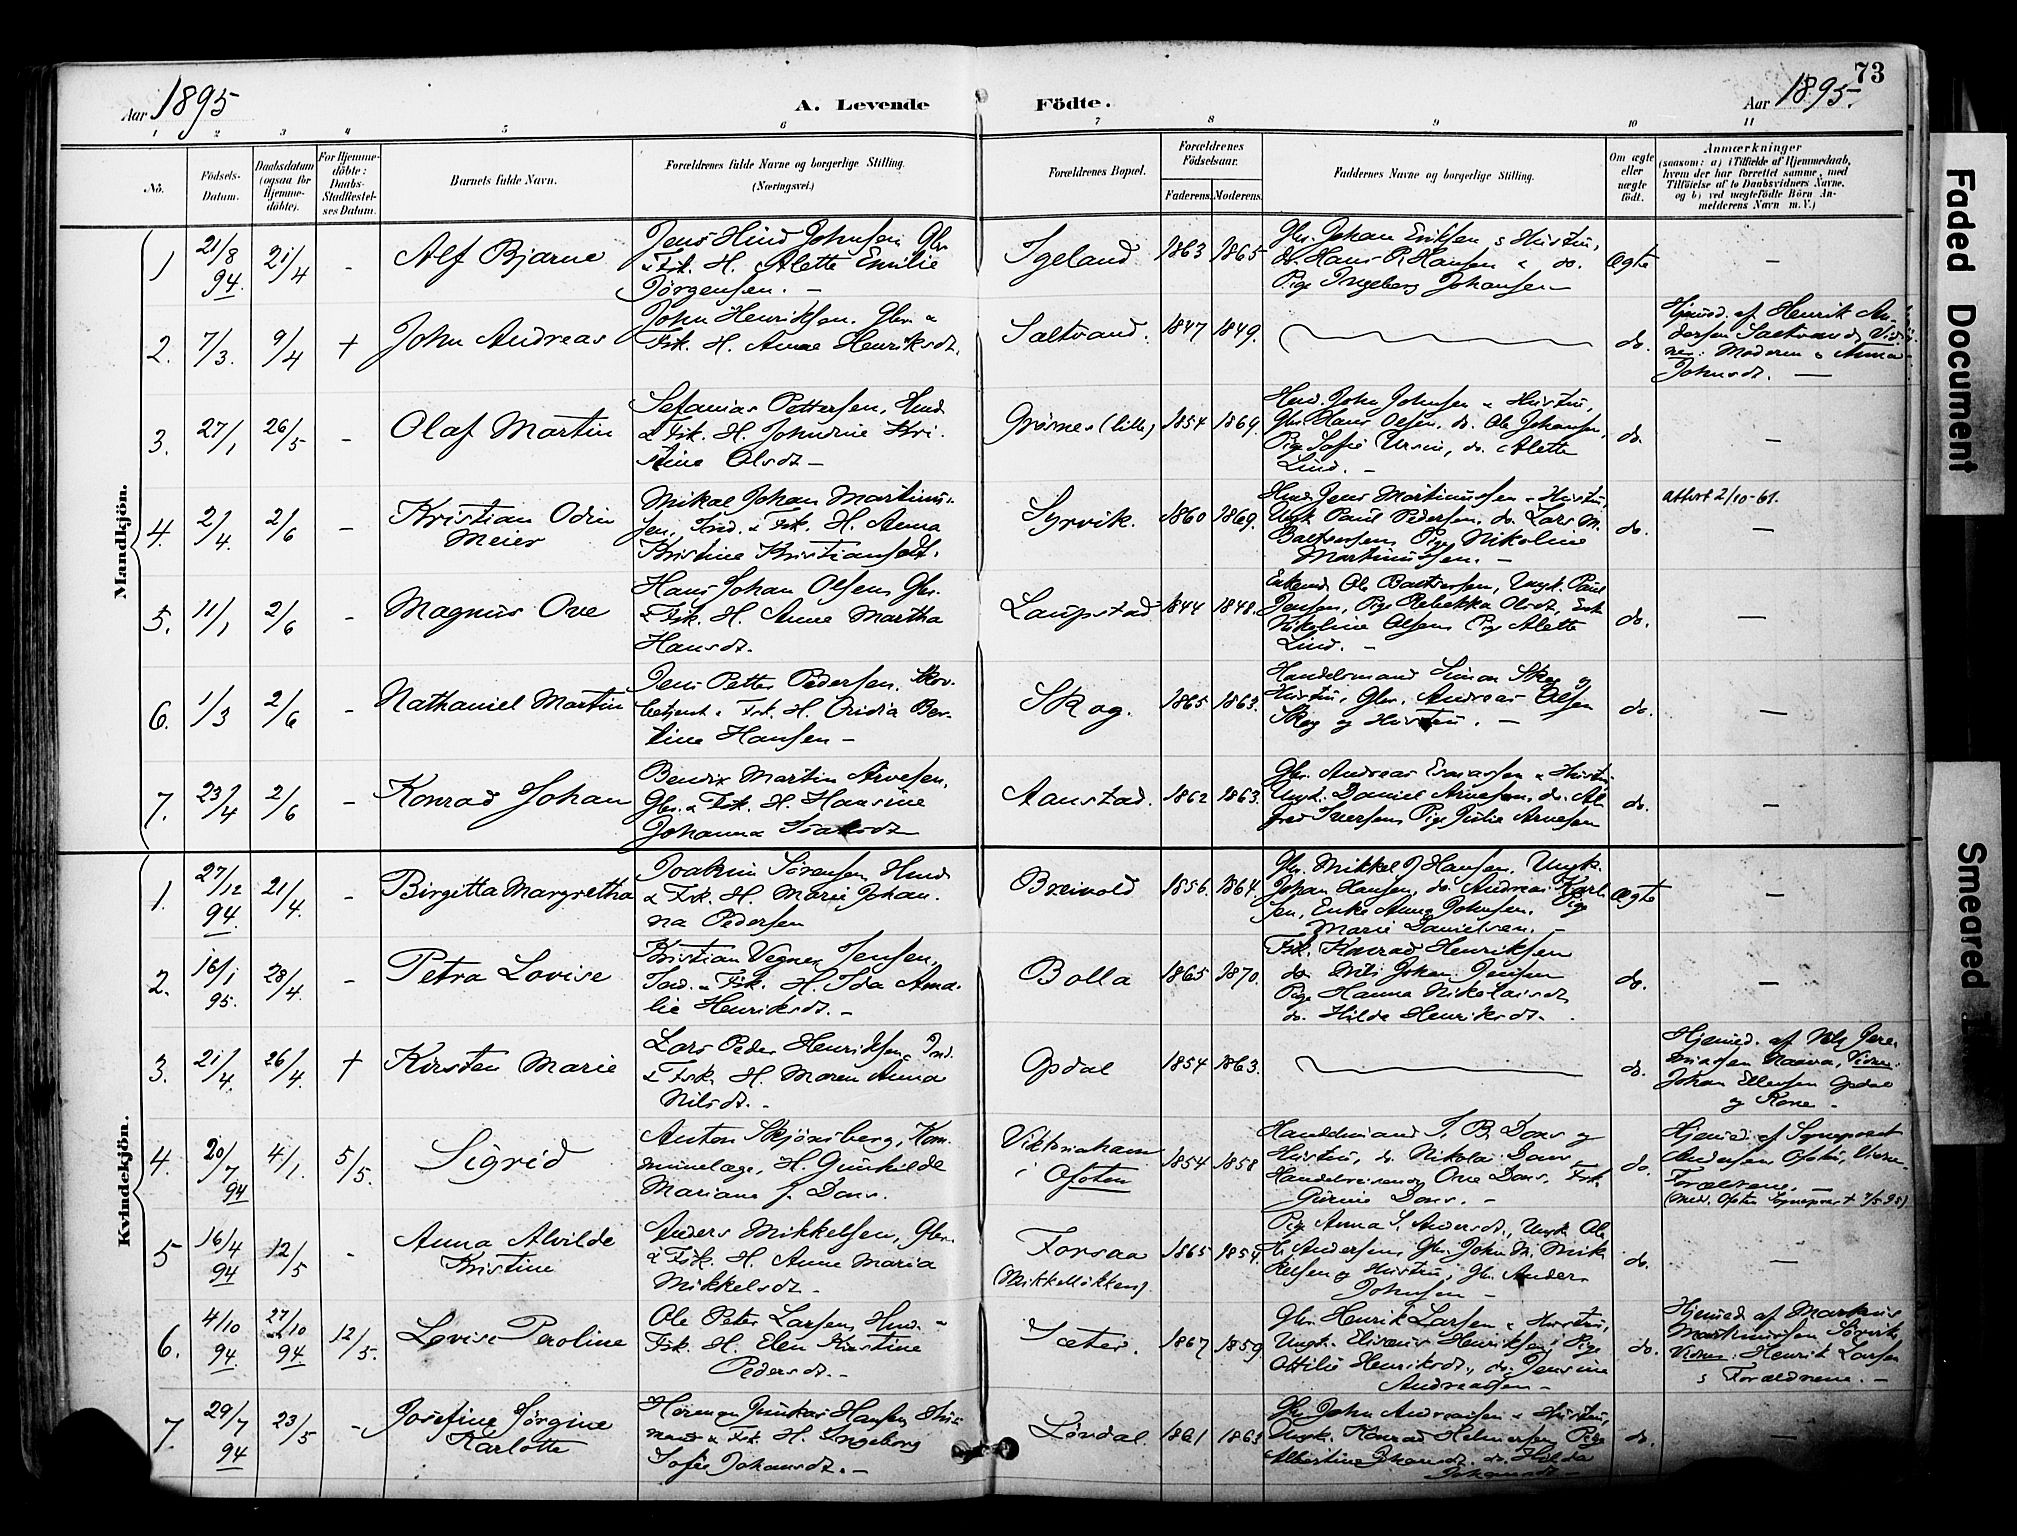 73
Aar 1895
A. Levende Födte.
Aar 1895.
1 2 3 4 5 6 7 8 9 10 11
Nö.
Födsels-Datum.
Daabsdatum (ogsaa for Hjemmedöbte).
For Hjemmedöbte: Daabs-Stadfæstelses Datum.
Barnets fulde Navn.
Forældrenes fulde Navne og borgerlige Stilling. (Næringsvei.)
Forældrenes Bopæl.
Forældrenes Födselsaar.
Faderens. Moderens.
Faddernes Navne og borgerlige Stilling.
Om ægte eller uægte födt.
Anmærkninger
(saasom: a) i Tilfælde af Hjemmedaab, hvem der har forrettet samme, med Tilföielse af to Daabsvidners Navne, og b) ved uægtefödte Börn Anmelderens Navn m. V.)
Mandkjön.
1
21/8 94.
21/4
-
Alf Bjarne
Jens Hind Johnsen Gbr.
& Fsk. H. Alette Emilie
Jørgensen. -
Igeland
1863
1865
Gbr. Johan Eriksen & Hustru,
do. Hans P. Hansen & do.
Pige Ingeborg Johansen -
Ægte
-
2.
7/3.
9/4
+
John Andreas
John Henriksen. Gbr. &
Fsk. H. Anne Henriksdt.
Saltvand.
1847
1849.
do.
Hjemd. af Henrik An-
dersen Saltvand, Vid-
ner: Moderen & Anna
Johnsdt. -
3.
27/1
26/5
-
Olaf Martin
Sefanias Pettersen, Hmd.
& Fsk. H. Johndine Kri-
stine Olsdt -
Grøsnes (lille)
1854
1869.
Hmd. John Johnsen & Hustru,
Gbr. Hans Olsen, do. Ole Johansen,
Pige Sofie Ursin, do. Alette
Lind. -
do.
-
4.
2/4.
2/6
-
Kristian Odin
Meier
Mikal Johan Martinus-
sen, Ind. & Fsk. H. Anna
Kristine Kristiansdt.
Syrvik.
1860
1869.
Hmd. Jens Martinussen & Hustru,
Ungk. Paul Pedersen, do. Lars M.
Baltsersen, Pige Nikoline
Martinussen. -
do.
attest 2/10-61.
-
5.
11/1
2/6
-
Magnus Ove
Hans Johan Olsen, Gbr.
& Fsk. H. Anne Martha
Hansdt.
Laupstad
1844
1848.
Enkemd. Ole Baltsersen, Ungk. Paul
Jensen, Pige Rebekka Olsdt, Enk.
Nikoline Olsen, Pige Alette
Lind. -
do.
-
6.
1/3
2/6
-
Nathaniel Martin
Jens Petter Pedersen, Skov-
betjent & Fsk. H. Ovidia Ber-
tine Hansen -
Skog.
1865
1863.
Handelsmand Simon Skog og
Hustru, Gbr. Andreas Olsen
Skog og Hustru. -
do.
-
7.
23/4
2/6
-
Konrad Johan
Bendix Martin Arvesen,
Gbr. & Fsk. H. Hansine
Johanna Isaksdt
Aanstad.
1862
1863.
Gbr. Andreas Esaiassen & Hustru
Ungk. Daniel Arvesen, do. Al-
fred Iversen, Pige Julie Arvesen
do.
-
Kvindekjön.
1.
27/12 94.
21/4.
-
Birgitta Margretha
Joakim Sørensen, Hmd.
& Fsk. H. Marie Johan-
na Pedersen
Breivold
1856.
1864.
Gbr. Mikkel J Hansen, Ungk.
Johan Hansen, do. Andreas Karl-
sen, Enke Anna Johnsen, Pige
Marie Danielsen. -
Ægte
-
2.
16/1 95.
28/4.
-
Petra Lovise
Kristian Vegner Jensen,
Ind. & Fsk. H. Ida Ama-
lie Henriksdt. -
Bolla
1865
1870.
Fsk. Konrad Henriksen
do. Nils Johan Jensen
Pige Hanna Nikolaisdt,
do. Hilde Henriksdt.
do.
-
3.
21/4.
26/4.
+
Kirsten Marie
Lars Peder Henriksen, Ind.
& Fsk. H. Maren Anna
Nilsdt. -
Opdal
1854
1863.
do.
Hjemd. af Nils Jere-
miassen Naava, Vidne:
Johan Ellevsen Opdal
og Kone -
4.
20/7 94
4/1.
5/5.
Sigrid
Anton Skjönsberg, Kom-
munelæge, H. Gunhilde
Mariane J. Dons.
Viktoriahavn
i Ofoten
1854
1858
Handelsmand J. B. Dons og
Hustru, do. Nikolai Dons,
Handelsreisende Ove Dons, Frk.
Gurine Dons. -
do.
Hjemd. af Sognepræst
Andersen Ofoten, Vidne-
Forældrene. -
(Med. Ofoten Sognepræst 7/5 95)
5
16/4 94
12/5
-
Anna Alvilde
Kristine
Anders Mikkelsen, Gbr.
& Fsk. H. Anne Maria
Mikkelsdt. -
Forsaa
(Mikkelløkken).
1865
1854.
Pige Anna S. Andersdt., Ungk. Ole
A. Andersen, Gbr. John M. Mik-
kelsen og Hustru, Gbr. Anders
Johnsen -
do.
-
6.
4/10 94
27/10 94
12/5.
Lovise Peroline
Ole Peter Larsen, Hmd. &
Fsk. H. Elen Kristine
Pedersdt. -
Sæter.
1867
1859
Gbr. Henrik Larsen & Hustru,
Ungk. Eliseus Henriksen, Pige
Ottilie Henriksdt., do. Jensine
Andreassen -
do.
Hjemd. af Markus
Martinussen Sørvik,
Vidner: Henrik Larsen
& Forældrene. -
7.
29/7 94
23/5
-
Josefine Jørgine
Karlotte
Herman Junkas Hansen,
& Fsk. H. Ingeborg
Sofie Johansdt. -
Løvdal
1861
1863
Gbr. John Andreassen & Hustru,
Ungk. Konrad Helmersen, Pige
Albertine Johansdt. do. Hilda
Johansdt -
do.
-
Faded Document
Smeared